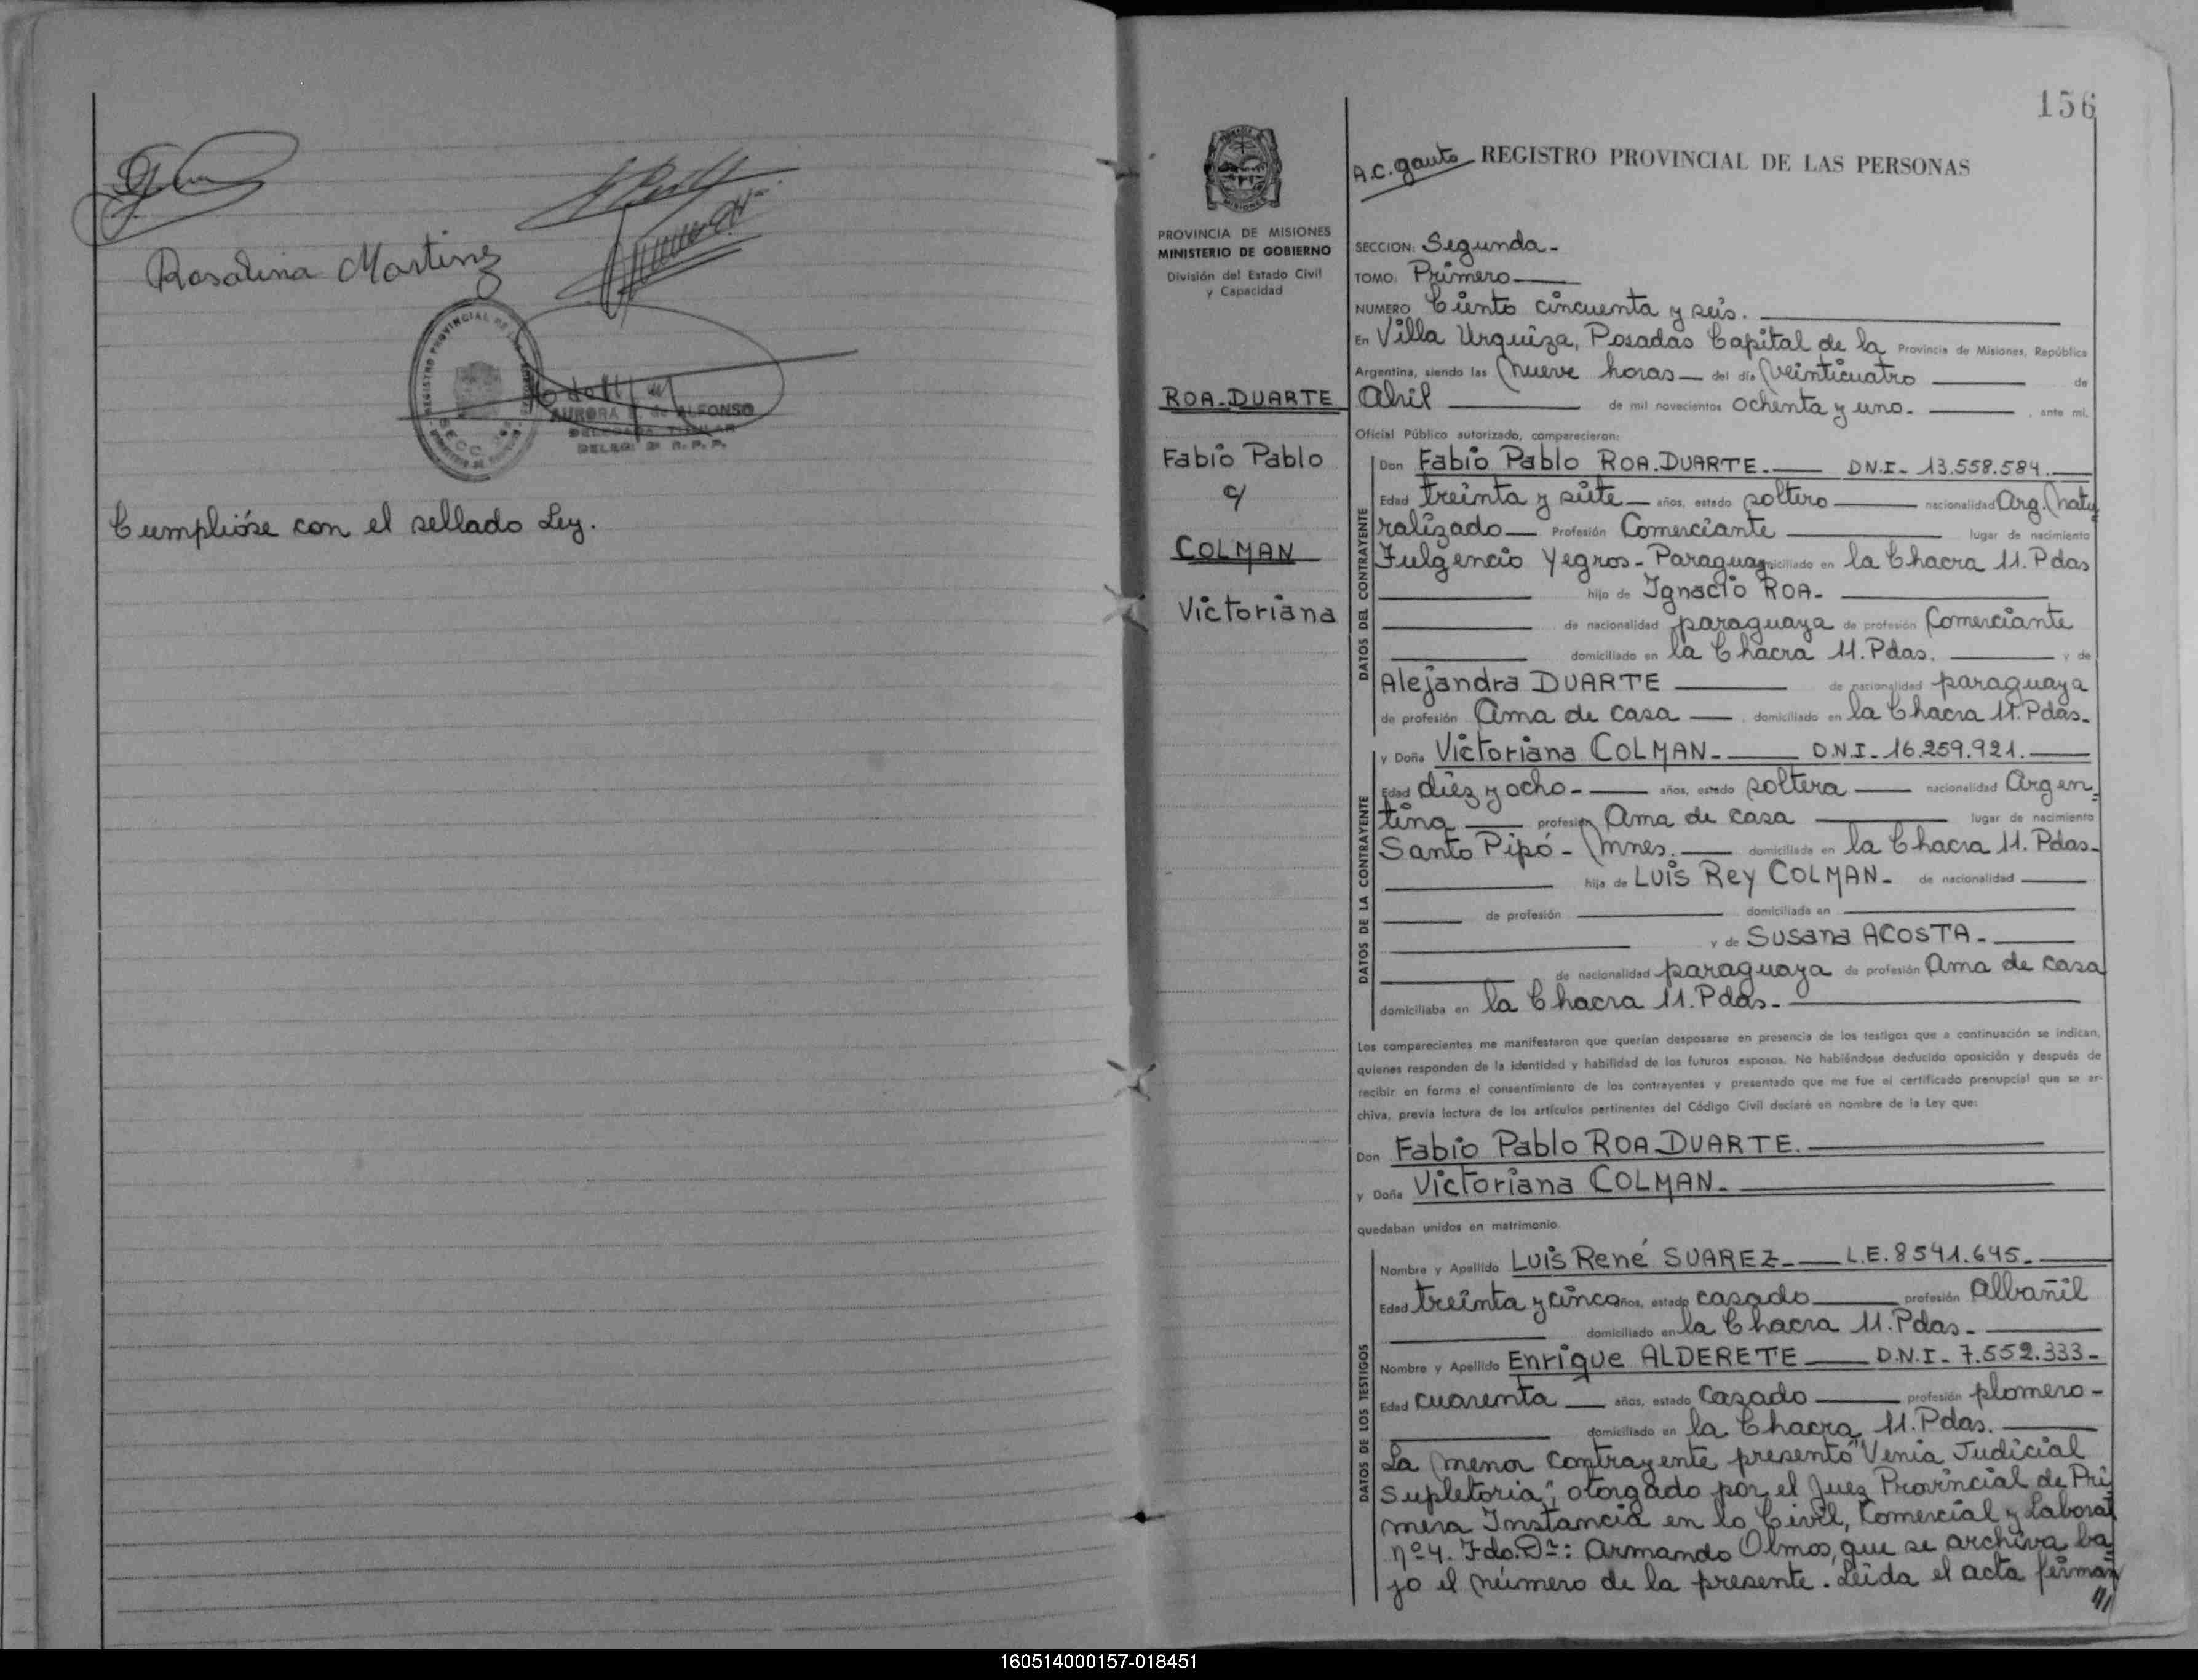 Rosalina Martinez
REGISTRO PROVINCIAL DE LAS
SECC.
AURORA de ALFONSO
DELEGADA TITULAR
DELEG. 2ª R. P. P.
Cumplióse con el sellado Ley.
156
A.C. Gauto
REGISTRO PROVINCIAL DE LAS PERSONAS
MISIONES
PROVINCIA DE MISIONES
MINISTERIO DE GOBIERNO
División del Estado Civil
y Capacidad
ROA-DUARTE
Fabio Pablo
c/
COLMAN
Victoriana
SECCION: Segunda-
TOMO: Primero
NUMERO Ciento cincuenta y seis.
En Villa Urquiza, Posadas Capital de la Provincia de Misiones, República
Argentina, siendo las nueve horas del día veinticuatro de
Abril de mil novecientos ochenta y uno. , ante mí,
Oficial Público autorizado, comparecieron:
DATOS DEL CONTRAYENTE
Don Fabio Pablo ROA-DUARTE. D.N.I- 13.558.584.
Edad treinta y siete años, estado soltero nacionalidad Arg. natu
ralizado Profesión Comerciante lugar de nacimiento
Fulgencio Yegros- Paraguay domiciliado en la Chacra 11. Pdas
hijo de Ignacio ROA-
de nacionalidad paraguaya de profesión Comerciante
domiciliado en la Chacra 11. Pdas. y de
Alejandra DUARTE de nacionalidad paraguaya
de profesión Ama de casa domiciliado en la Chacra 11. Pdas-
DATOS DE LA CONTRAYENTE
y Doña Victoriana COLMAN- D.N.I- 16.259.921.
Edad diez y ocho- años, estado soltera nacionalidad Argen=
tina profesión Ama de casa lugar de nacimiento
Santo Pipó- Mnes. domiciliada en la Chacra 11. Pdas-
hija de Luis Rey COLMAN- de nacionalidad
de profesión domiciliada en
y de Susana ACOSTA-
de nacionalidad paraguaya de profesión Ama de casa
domiciliaba en la Chacra 11. Pdas-
Los comparecientes me manifestaron que querían desposarse en presencia de los testigos que a continuación se indican,
quienes responden de la identidad y habilidad de los futuros esposos. No habiéndose deducido oposición y después de
recibir en forma el consentimiento de los contrayentes y presentado que me fue el certificado prenupcial que se ar-
chiva, previa lectura de los artículos pertinentes del Código Civil declaré en nombre de la Ley que:
Don Fabio Pablo ROA-DUARTE.
y Doña Victoriana COLMAN-
quedaban unidos en matrimonio
DATOS DE LOS TESTIGOS
Nombre y Apellido Luis René SUAREZ- L.E. 8541.645-
Edad treinta y cinco años, estado casado profesión Albañil
domiciliado en la Chacra 11. Pdas-
Nombre y Apellido Enrique ALDERETE D.N.I- 7.552.333-
Edad cuarenta años, estado Casado profesión plomero-
domiciliado en la Chacra 11. Pdas.
La menor contrayente presentó "Venia Judicial
Supletoria", otorgado por el Juez Provincial de Pri
mera Instancia en lo Civil, Comercial y Laboral
nº4. Fdo. Dr: Armando Olmos, que se archiva ba=
jo el número de la presente. Leida el acta firman
///
160514000157-018451